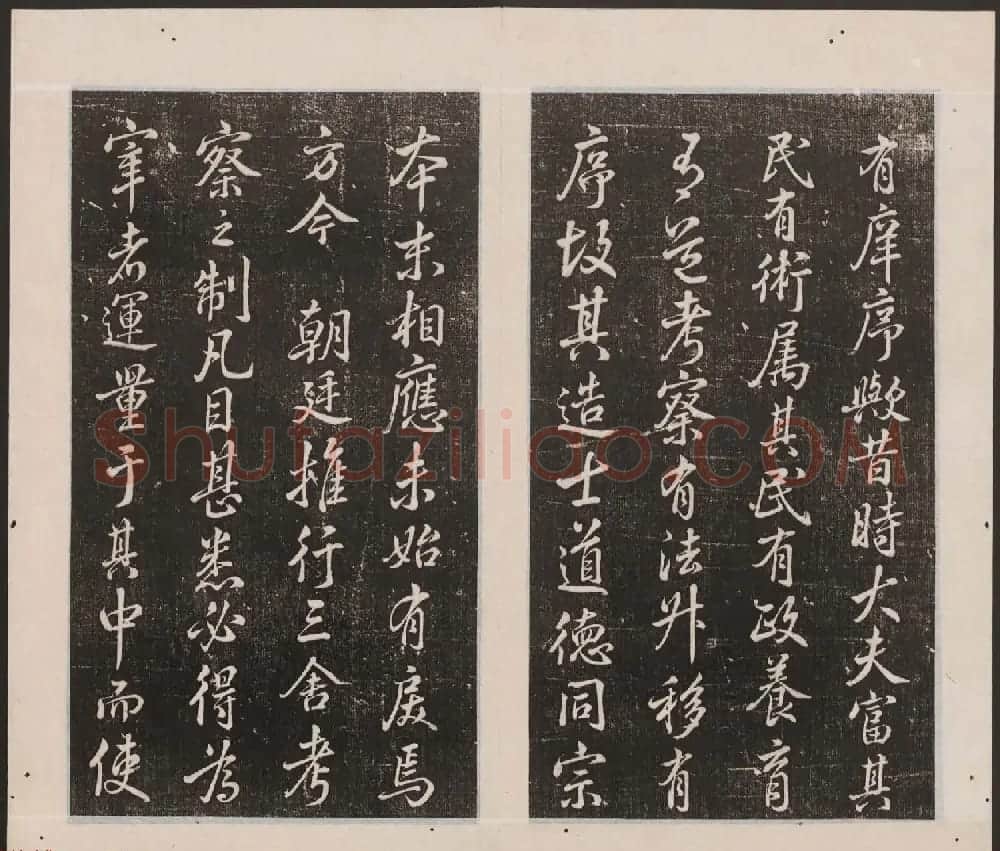 有庠序歟昔時大夫富其
民有術属其民有政養育
有道考察有法升移有
序故其造士道德同宗
本末相應未始有戾焉
方今 朝廷推行三舍考
察之制凡目甚悉必得為
宰者運量于其中而使
Shufaziliao.COM